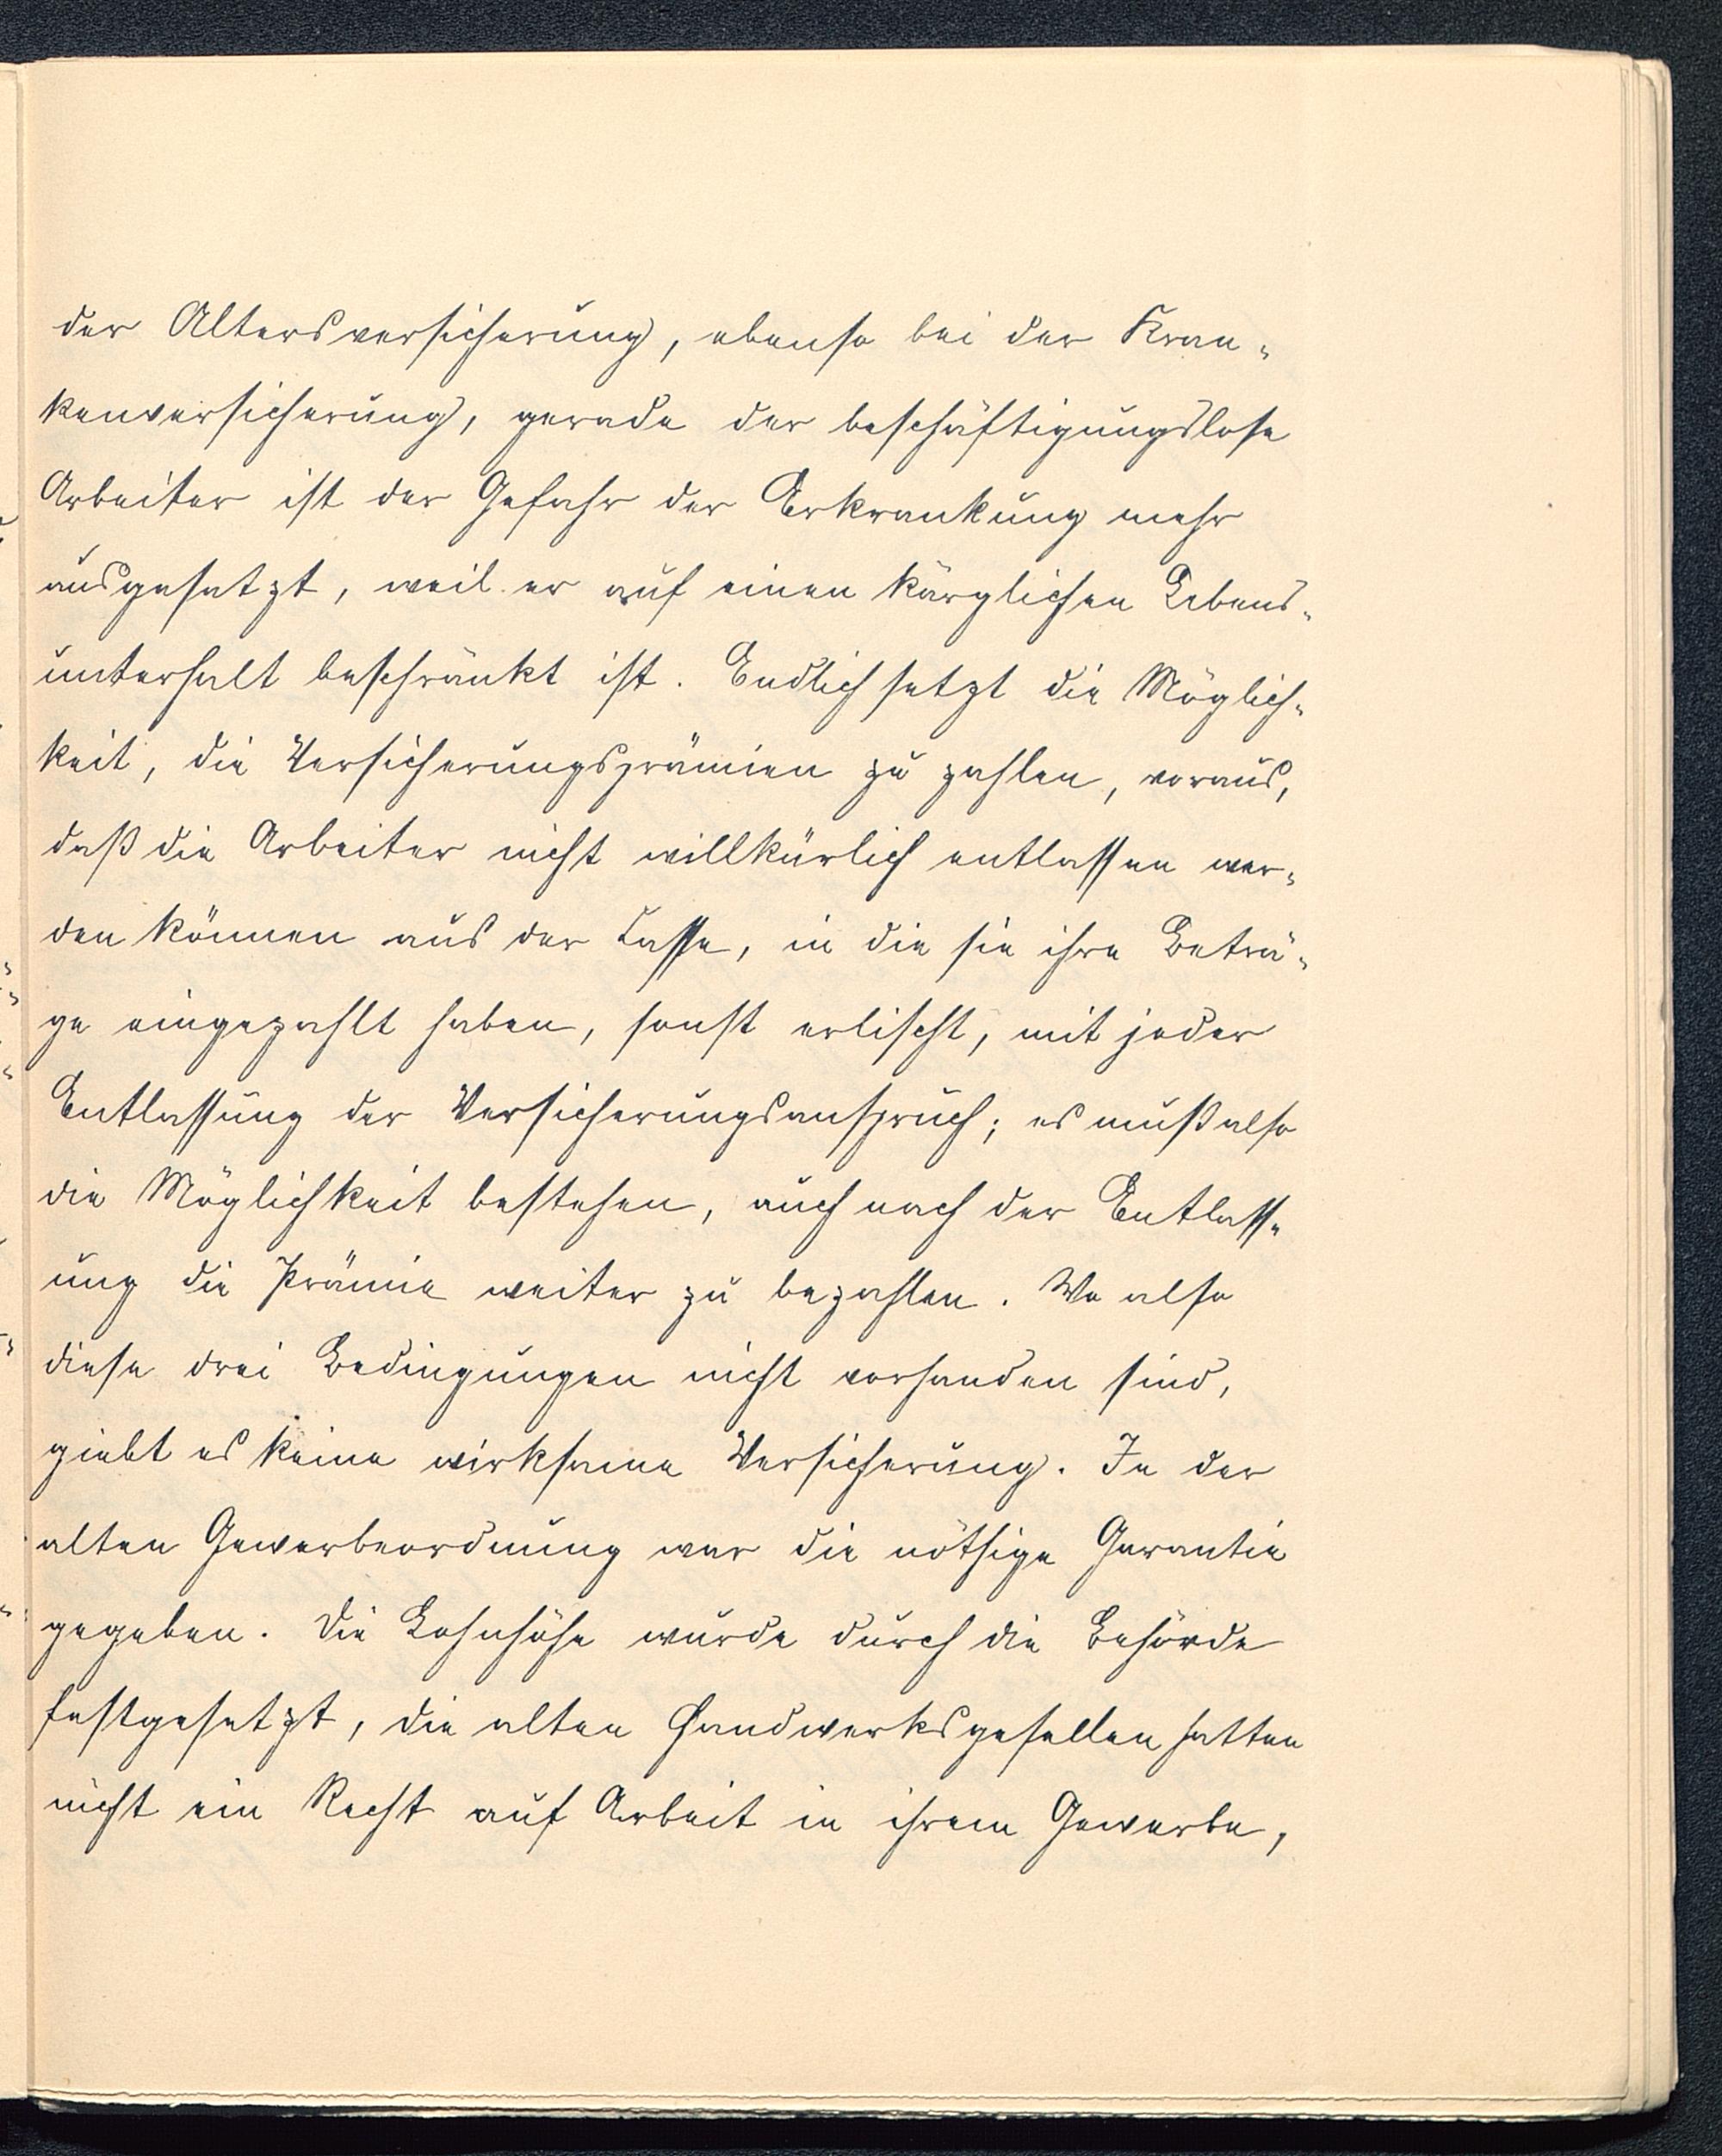 der Altersversicherung, ebenso bei der Kran-
kenversicherung, gerade der beschäftigungslose
Arbeiter ist der Gefahr der Erkrankung mehr
ausgesetzt, weil er auf einen kärglichen Lebens-
unterhalt beschränkt ist. Endlich setzt die Möglich-
keit, die Versicherungsprämien zu zahlen, voraus,
daß die Arbeiter nicht willkürlich entlassen wer-
den können aus der Casse, in die sie ihre Beträ-
ge eingezahlt haben, sonst erlischt, mit jeder
Entlassung der Versicherungsanspruch; es muß also
die Möglichkeit bestehen, auch nach der Entlass-
ung die Prämie weiter zu bezahlen. Wo also
diese drei Bedingungen nicht vorhanden sind,
giebt es keine wirksame Versicherung. In der
alten Gewerbeordnung war die nöthige Garantie
gegeben. Die Lohnhöhe wurde durch die Behörde
festgesetzt, die alten Handwerksgesellen hatten
nicht ein Recht auf Arbeit in ihrem Gewerbe,